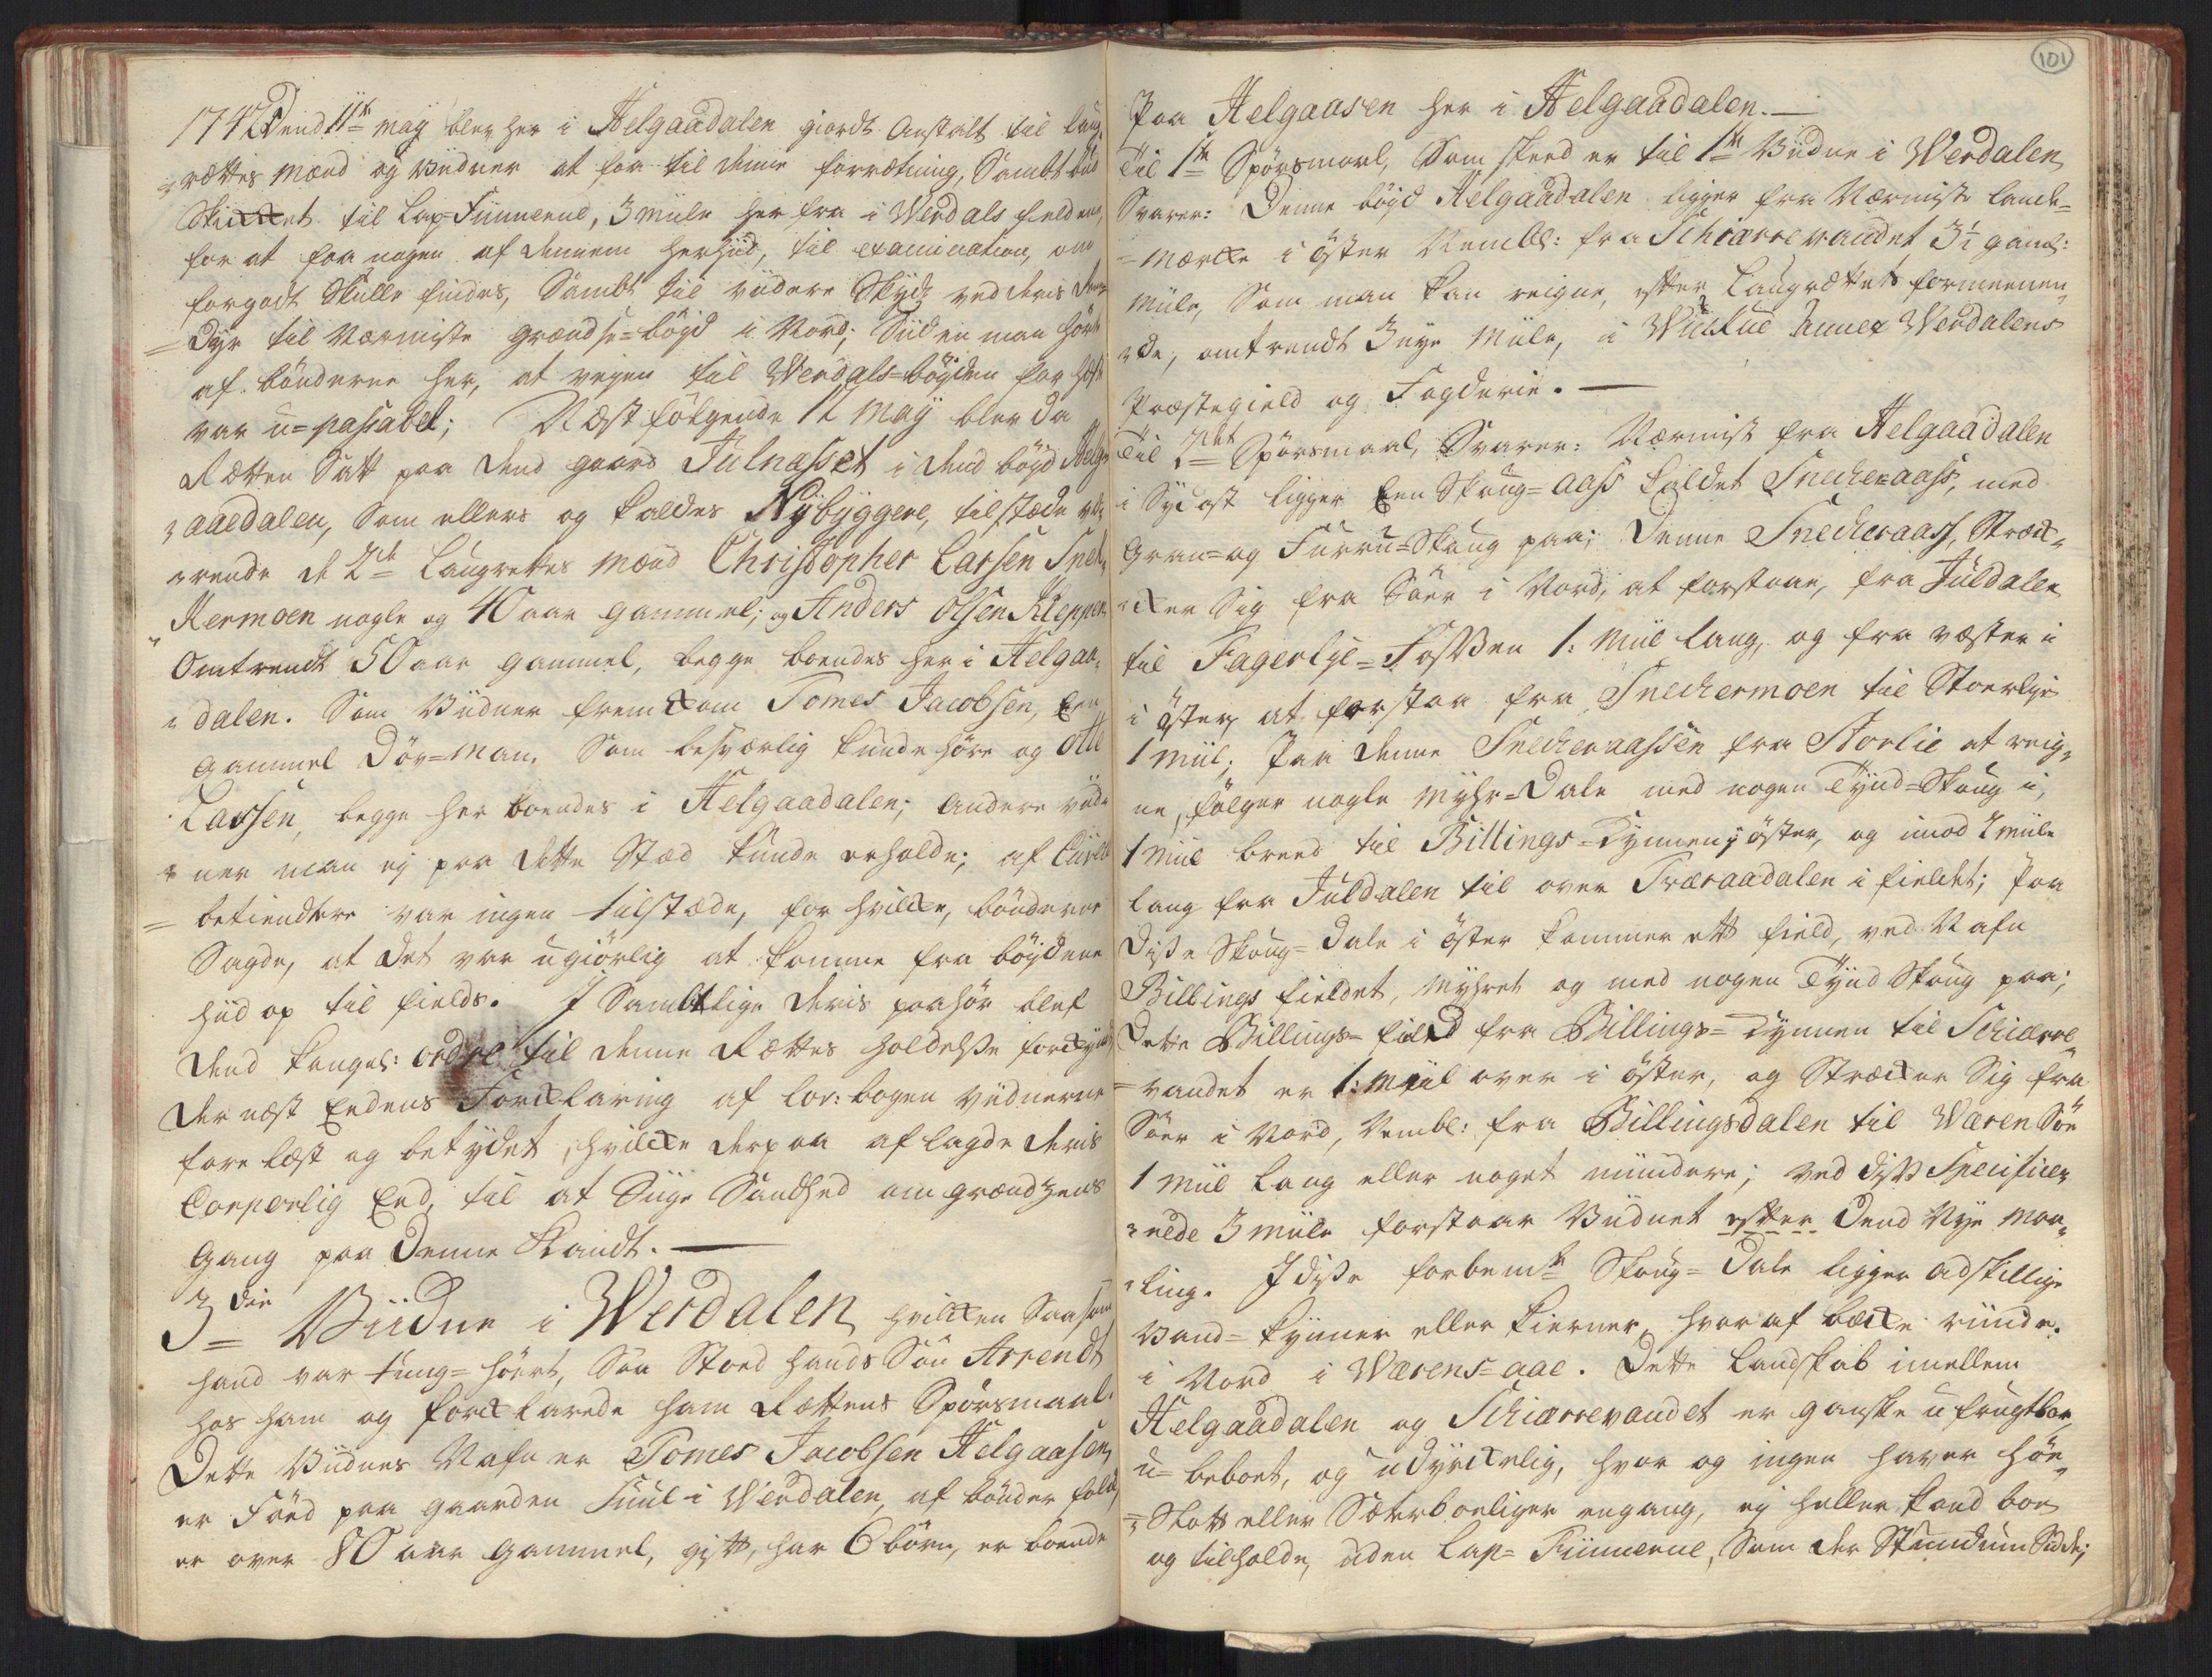 1742 Dend 11te maÿ blev her i Helgaadalen giordt Anstalt til Laug-
=rættes Mænd og Viidner at faa til denne forrætning, Sambt bud
Skicket til Lap-Finnerne, 3 miile her fra i Werdals fieldene,
for at faa nogen af dennem herhiid, til examination, om
forgodt Skulle findes, Sambt til viidere Skyds ved deris Reens
=Dÿr til Nærmiste grændse=bögd i Nord; Siiden man hörte
af bönderne her, at veÿen til Werdals=böÿden for hæste
var u=passabel; Næstfölgende 12 Maÿ blev da
Rætten Satt paa dend gaard Julnæsset i dend böÿd Helge
=aaedalen, Som ellers og kaldes Nÿbÿggere, tilstæde væ-
=rende de 2de Laugrettes Mænd Christopher Larsen Snek-
Kermoen nogle og 40 aar gammel; og Anders Olsen Kleppen
Omtrendt 50 aar gammel, begge boendes her i Helgaa-
=dalen. Som Viidner fremkom Tomes Jacobsen, Een
gammel Döv=Man, Som besværlig kunde höre og Olle
Larsen, begge her boendes i Helgaadalen; Andere viid-
=ner man eÿ paa dette Stæd kunde erholde; af Civile
=betiendtere var ingen tilstæde, for hvilcke, bönderne
Sagde, at det var ugiörlig at komme fra böÿdene
hiid op til fields. I Samblige deris paahör blef
dend kongel: ordre til denne Rættes holdelse forkynt
der næst Eedens Forcklaring af lov: bogen viidnerne
fore læst og betÿdet, hvilcke derpaa aflagde deris
Corporlig Eed, til at Siige Sandhed om grændsens
Gang paa denne Kandt. —
3die Viidne i Werdalen, hvilcken Saasom
hand var tung=hört, Saa Stoed hands Sön Arrendt
hos ham og forcklarede ham Rættens Spörsmaal.
Dette Viidnes Nafn er Tomes Jacobsen Helgaasen,
er Föed paa gaarden Suul i Werdalen, af bönder folck,
er over 80 aar gammel, gift, har 6 börn, er boende
101
Paa Helgaasen her i Helgaadalen. —
Til 1te Spörsmaal, Som skeed er til 1te Viidne i Werdalen,
Svarer: Denne böÿd Helgaadalen ligger fra Nærmiste Lande=
=mercke i öster Nembl: fra Schiærrevandet 3½ gaml:
Miile, Som man kan reigne, efter Laugrættets formeenen-
=de, omtrendt 3 nÿe Miile, i Wuckue Annex Werdalens
Præstegield og Fogderie. —
Til 2det Spörsmaal, Svarer: Nærmist fra Helgaadalen
i Sÿdost ligger Een Skoug=aass kaldet Sneckeraass, med
Gran= og Furru=Skoug paa; Denne Sneckeraass, Stræck-
=cker Sig fra Söer i Nord, at forstaae, fra Juldalen
til Fagerlje=Fossen 1: Miil lang, og fra væster i
i öster at forstaa fra Sneckermoen til Stoerlje
1 Miil; Paa denne Sneckeraassen fra Storlie at reig-
ne, fölger nogle Mÿhr=Dale med nogen Tÿnd=Skoug i,
1 Miil breed til Billings=Kynnen i öster, og imod 2 miile
lang fra Juldalen til over Træraadalen i fieldet; Paa
disse Skoug=dale i öster kommer ett field, ved Nafn
Billings fieldet, Mÿhret og med nogen Tÿnd Skoug paa;
Dette Billings=field fra Billings=Kynnen til Schiærre
=vandet er 1: Miil over i öster, og Stræcker Sig fra
Söer i Nord, Nembl: fra Billingsdalen til Wæren Söe
1 Miil Lang eller noget mindere; ved disse Specificer-
=rede 3 miile forstaar Viidnet efter Dend Nÿe Maa-
=ling. I disse forbemte Skoug=Dale ligger adskillige
Vand=Kynner eller Kierner, hvor af bæcke rinde
i Nord i Wærens=aae. Dette Landskab imellem
Helgaadalen og Schiærrevandet er ganske u frugtbar,
u=beboet, og udÿrckelig, hvor og ingen haver Höe-
=Slott eller Sæterboeliger engang, eÿ heller kand boe
og tilholde, uden Lap=Finnerne, Som der Stundum Sidde;